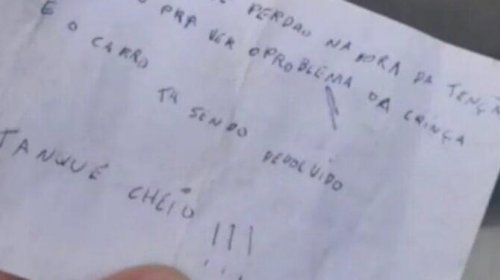 PERDAO NA HORA DA
O PRA VER O PROBLEMA DA CRINÇA
E O CARRO TA SENDO DEVOLVIDO
TANQUE CHEIO !!!